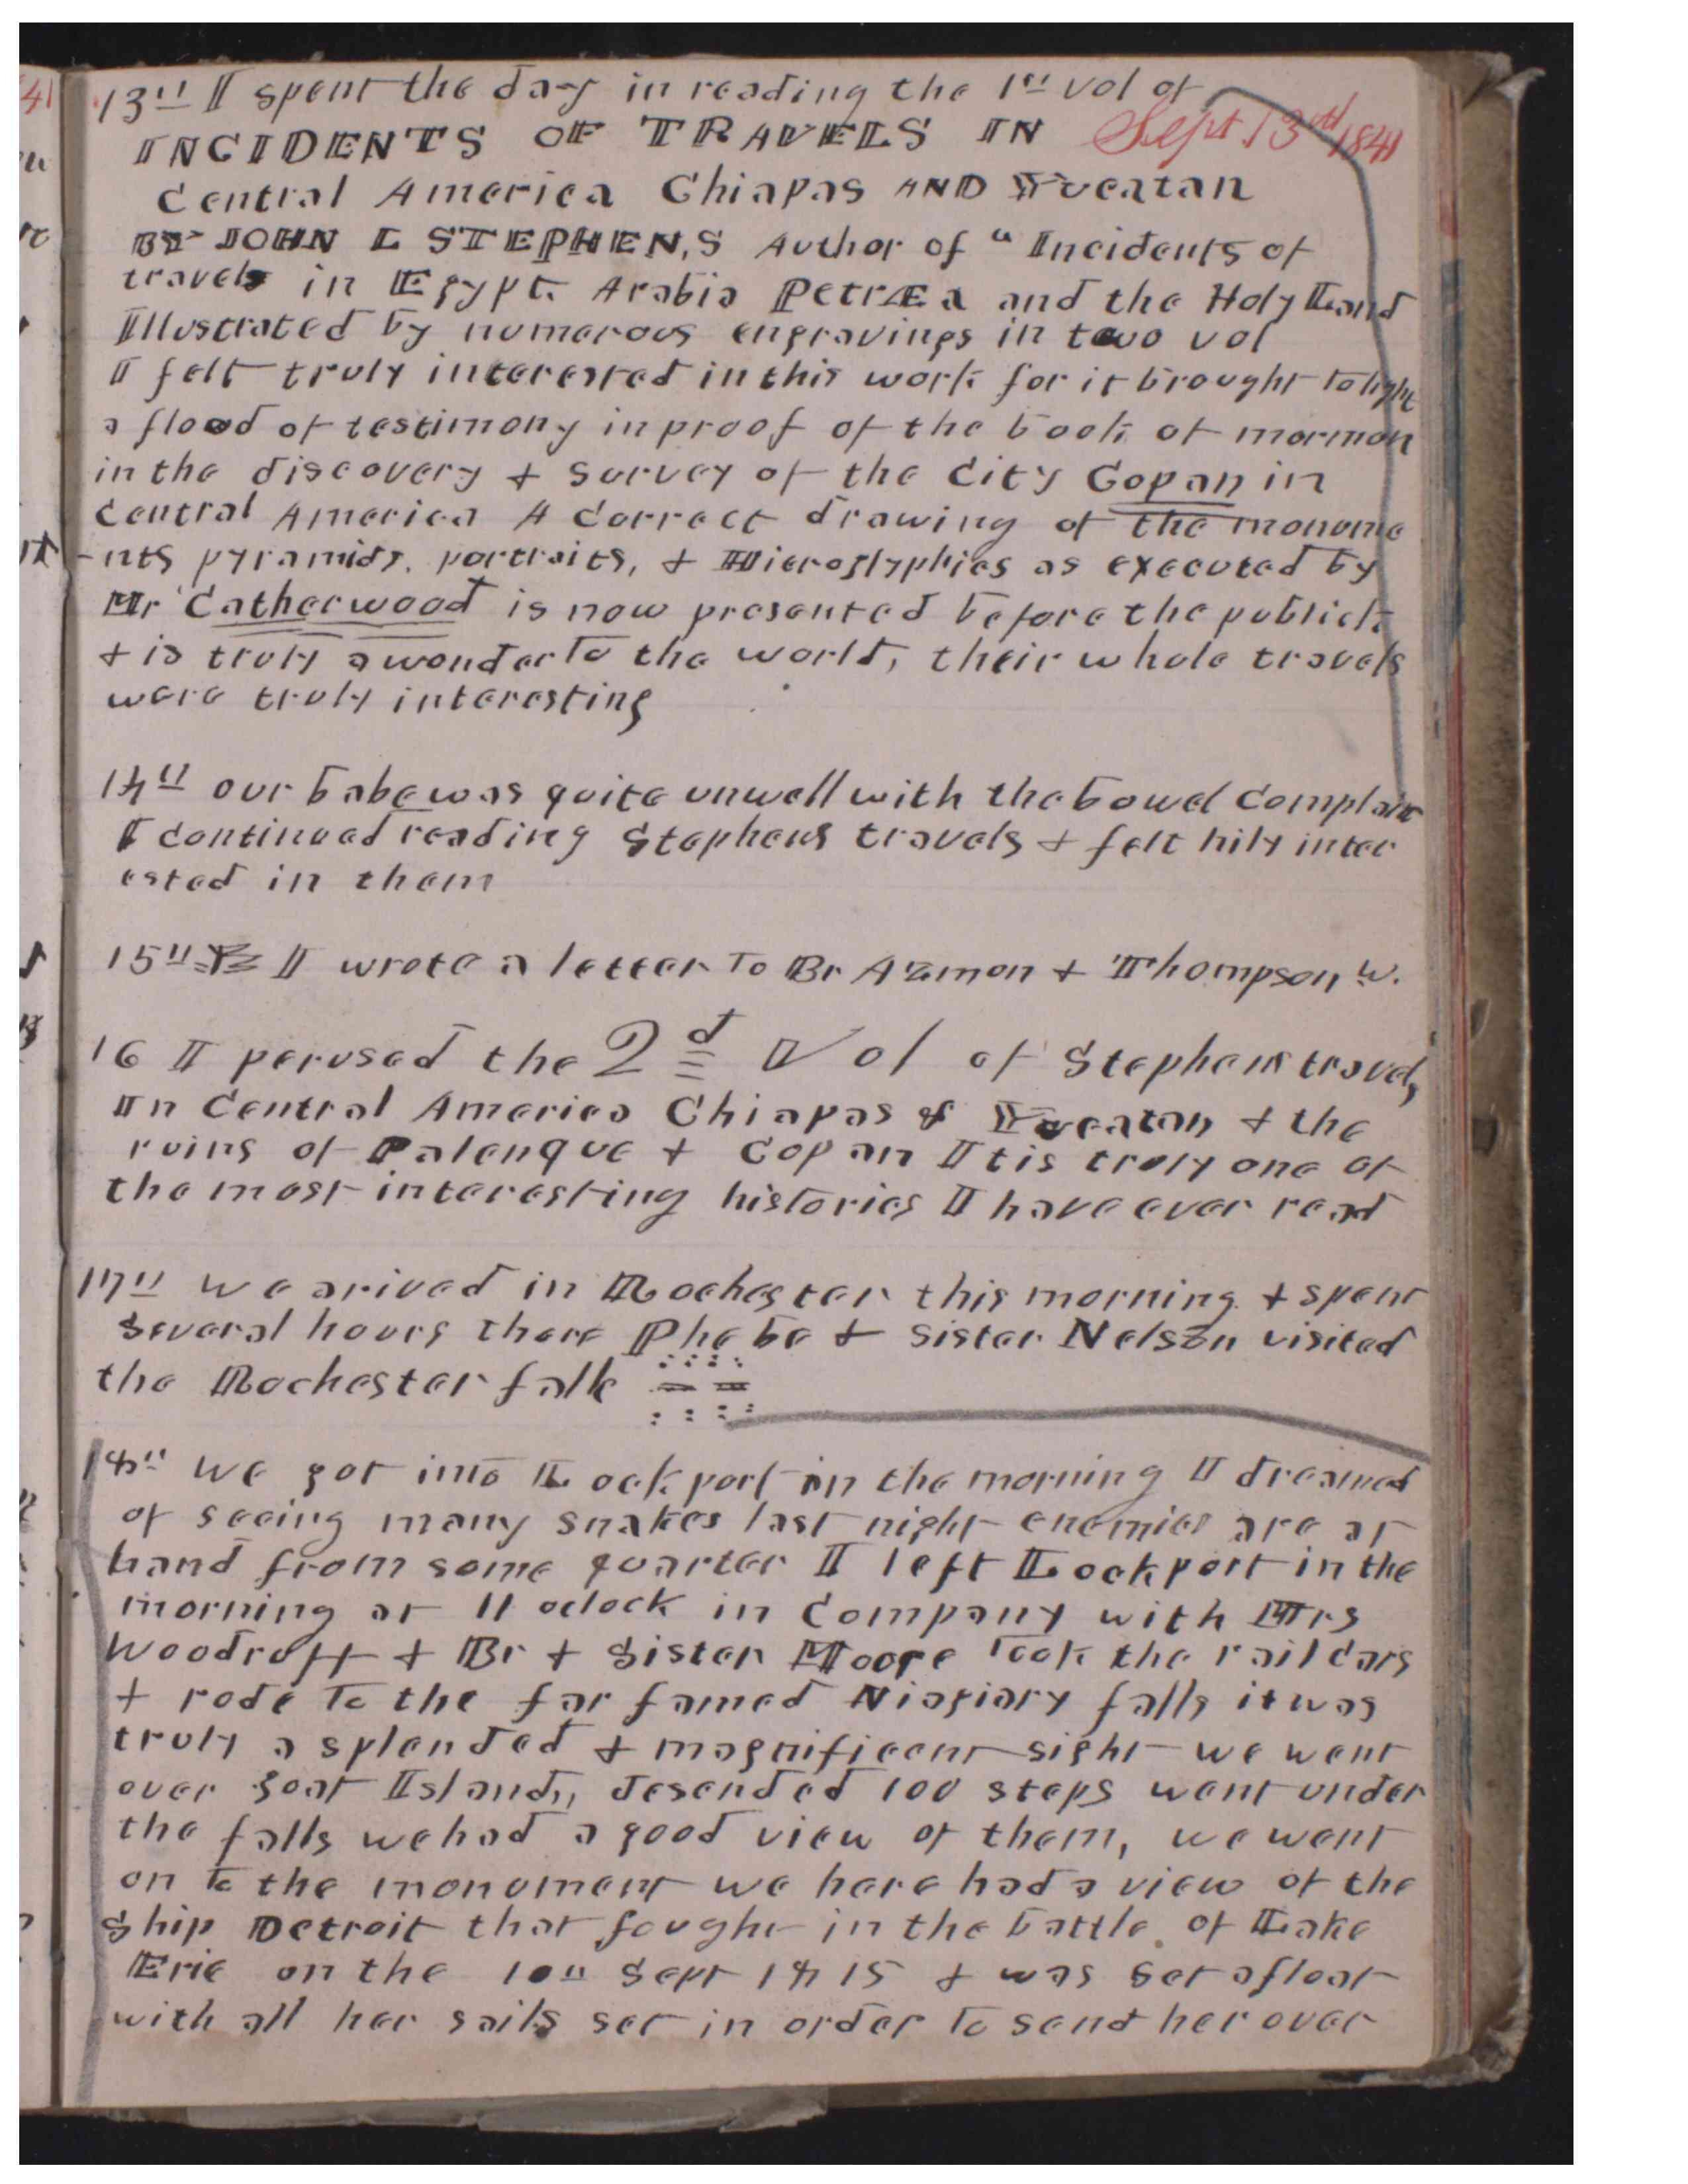 13th I spent the day in reading the 1st vol of
INCIDENTS OF TRAVELS IN
Sept 13th 1841
Central America Chiapas AND Yucatan
BY JOHN L STEPHEN,S Author of "Incidents of
travels in Egypt. Arabia PetrÆa and the Holy Land
Illustrated by numerous engravings in two vol
I felt truly interested in this work for it brought to light
a flood of testimony in proof of the book of mormon
in the discovery & survey of the city Copan in
Central America A correct drawing of the monume
-nts pyramids, portraits, & Hieroglyphics as executed by
Mr Catherwood is now presented before the publick
& is truly a wonder to the world, their whole travels
were truly interesting
14th our babe was quite unwell with the bowel complaint
I continued reading Stephens travels & felt hily inter
ested in them
15th I wrote a letter to Br Azmon & Thompson W.
16 I perused the 2d Vol of Stephens travels
In Central America Chiapas & Yucatan & the
ruins of Palenque & Copan It is truly one of
the most interesting histories I have ever read
17th we arived in Rochester this morning & spent
several hours there Phebe & Sister Nelson visited
the Rochester falls
18th we got into Lockport in the morning I dreamed
of seeing many snakes last night enemies are at
hand from some quarter I left Lockport in the
morning at 11 oclock in company with Mrs
Woodruff & Br & Sister Moore took the rail cars
& rode to the far famed Niagiary falls it was
truly a splended & magnificent sight we went
over goat Island,, desended 100 steps went under
the falls we had a good view of them, we went
on to the monument we here had a view of the
Ship Detroit that fought in the battle of Lake
Erie on the 10th Sept 1815 & was set afloat
with all her sails set in order to send her over
41